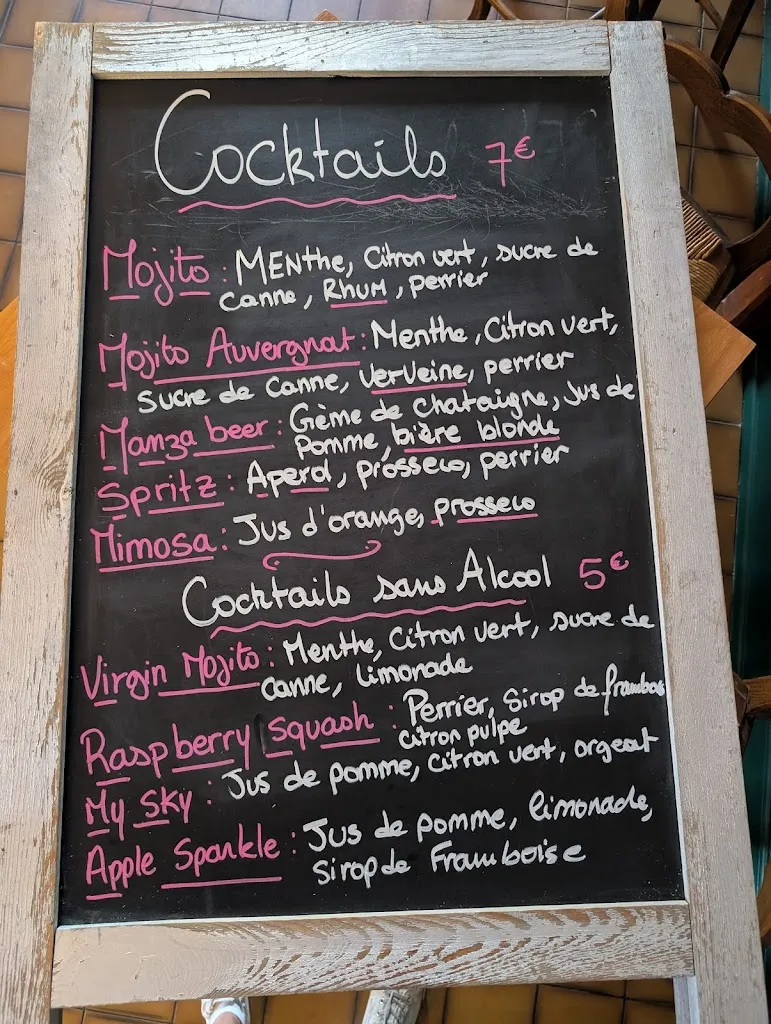 Cocktails 7€
Mojito : Menthe, Citron vert, sucre de
canne, Rhum, perrier
Mojito Auvergnat : Menthe, Citron vert,
sucre de canne, Verveine, perrier
Manza beer : Crème de chataigne, Jus de
Pomme, bière blonde
Spritz : Aperol, prosseco, perrier
Mimosa : Jus d'orange, prosseco
Cocktails sans Alcool 5€
Virgin Mojito : Menthe, Citron vert, sucre de
canne, limonade
Raspberry Squash : Perrier, Sirop de framboise
citron pulpe
My Sky : Jus de pomme, citron vert, orgeat
Apple Sparkle : Jus de pomme, limonade,
sirop de Framboise